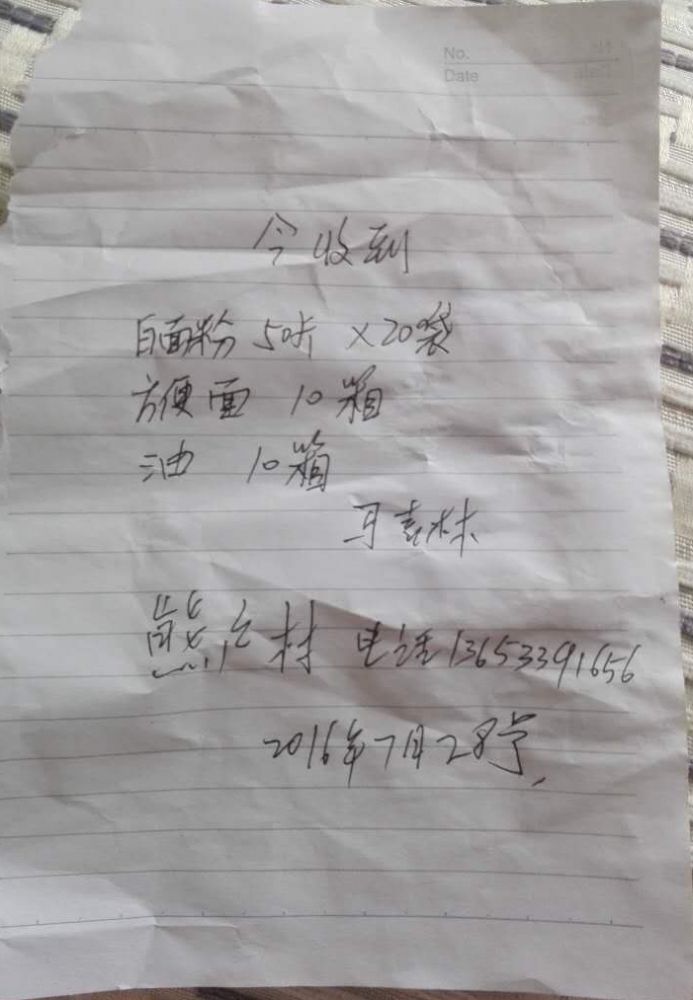 No.
Date
今收到
白面粉 50斤 ×20袋
方便面 10箱
油 10箱
马素林
熊庄村 电话13653391656
2016年7月28号